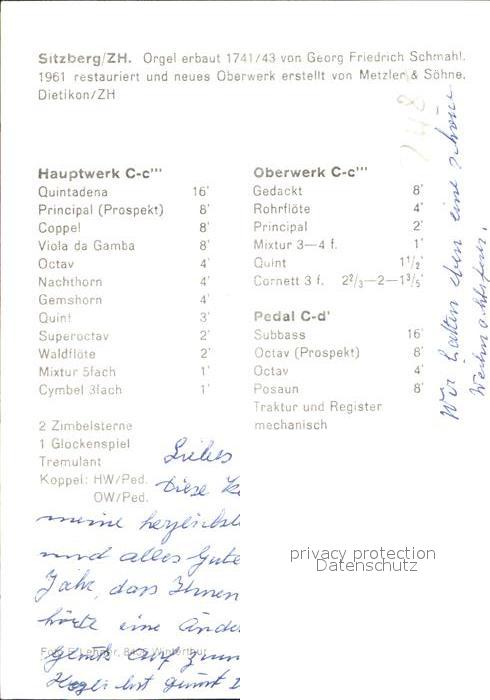 Sitzberg/ZH. Orgel erbaut 1741/43 von Georg Friedrich Schmahl.
1961 restauriert und neues Oberwerk erstellt von Metzler & Söhne,
Dietikon/ZH
Hauptwerk C-c'''
Quintadena 16'
Principal (Prospekt) 8'
Coppel 8'
Viola da Gamba 8'
Octav 4'
Nachthorn 4'
Gemshorn 4'
Quint 3'
Superoctav 2'
Waldflöte 2'
Mixtur 5fach 1'
Cymbel 3fach 1'
2 Zimbelsterne
1 Glockenspiel
Tremulant
Koppel: HW/Ped.
OW/Ped.
Oberwerk C-c'''
Gedackt 8'
Rohrflöte 4'
Principal 2'
Mixtur 3—4 f. 1'
Quint 1 1/2'
Cornett 3 f. 2 2/3—2—1 3/5'
Pedal C-d'
Subbass 16'
Octav (Prospekt) 8'
Octav 4'
Posaun 8'
Traktur und Register
mechanisch
Wir hatten eben eine schöne
Weihnachtsfeier.
Liebes
Diese
meine herzlichst
und alles Gute
Jahr, dass Ihnen
hörte eine Ände
auf zum
privacy protection
Datenschutz
Winterthur